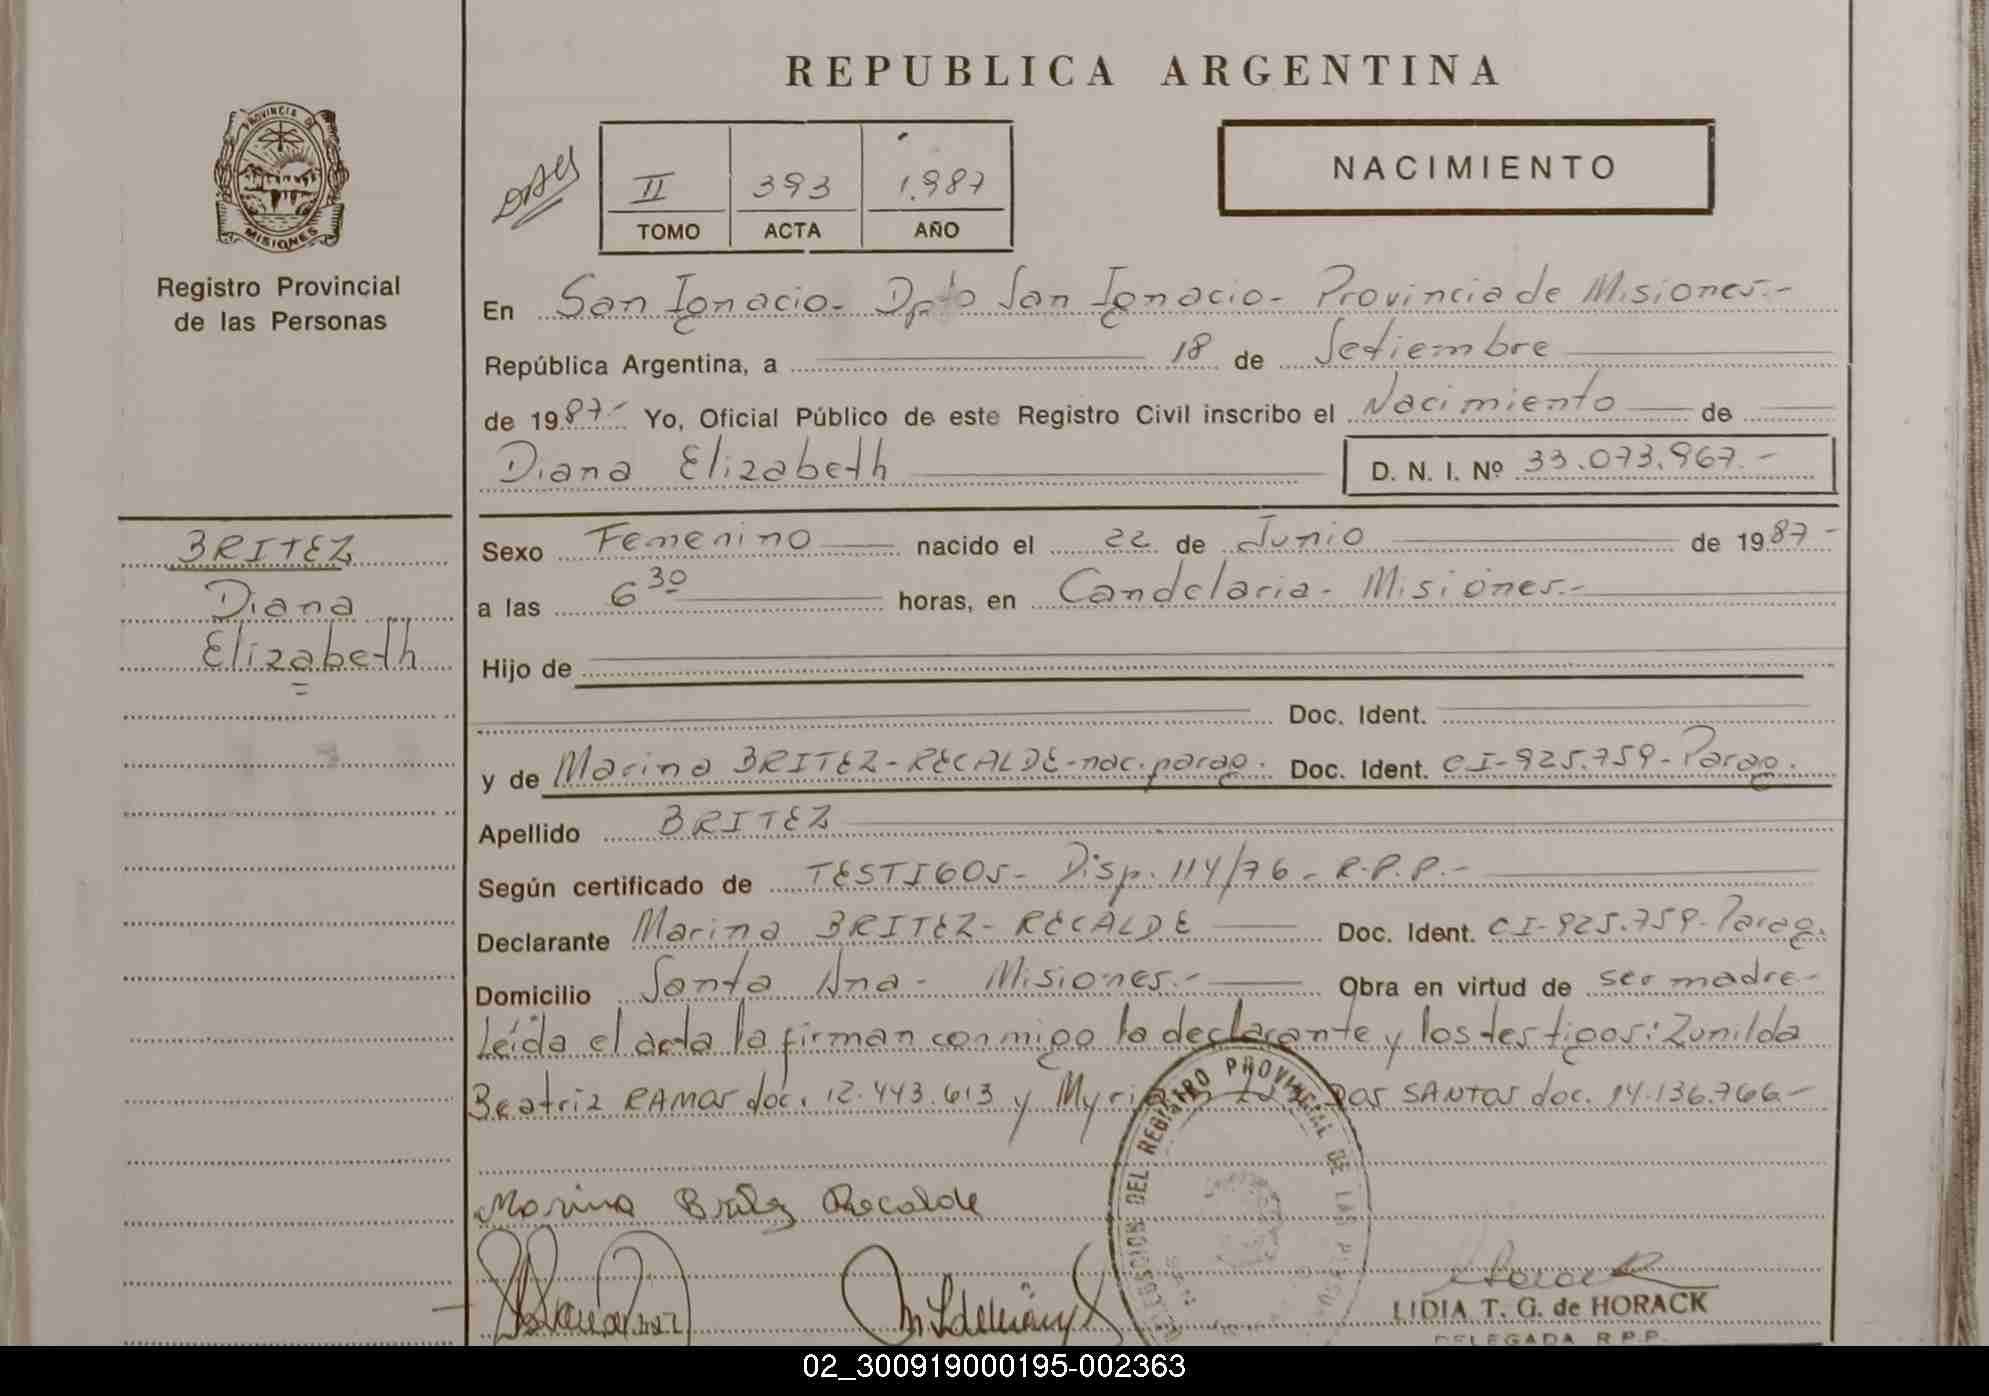 REPUBLICA ARGENTINA
PROVINCIA DE
MISIONES
Registro Provincial
de las Personas
II 393 1.987
TOMO ACTA AÑO
NACIMIENTO
En San Ignacio- Dpto San Ignacio- Provincia de Misiones.-
República Argentina, a 18 de Setiembre
de 1987.- Yo, Oficial Público de este Registro Civil inscribo el Nacimiento de
Diana Elizabeth D. N. I. Nº 33.073.967.-
BRITEZ
Diana
Elizabeth
Sexo Femenino nacido el 22 de Junio de 1987-
a las 6 30 horas, en Candelaria- Misiones.-
Hijo de
Doc. Ident.
y de Marina BRITEZ-RECALDE-nac.parag. Doc. Ident. CI-925.759-Parag.
Apellido BRITEZ
Según certificado de TESTIGOS- Disp. 114/76- R.P.P.-
Declarante Marina BRITEZ-RECALDE Doc. Ident. CI-925.759-Parag.
Domicilio Santa Ana- Misiones.- Obra en virtud de ser madre-
Leída el acta la firman conmigo la declarante y los testigos: Zunilda
Beatriz RAMOS doc. 12.443.613 y SANTOS doc. 14.136.766.-
DEL REGISTRO PROVINCIAL DE LAS
Marina Britez Recalde
LIDIA T. G. de HORACK
DELEGADA R.P.P.
02_300919000195-002363